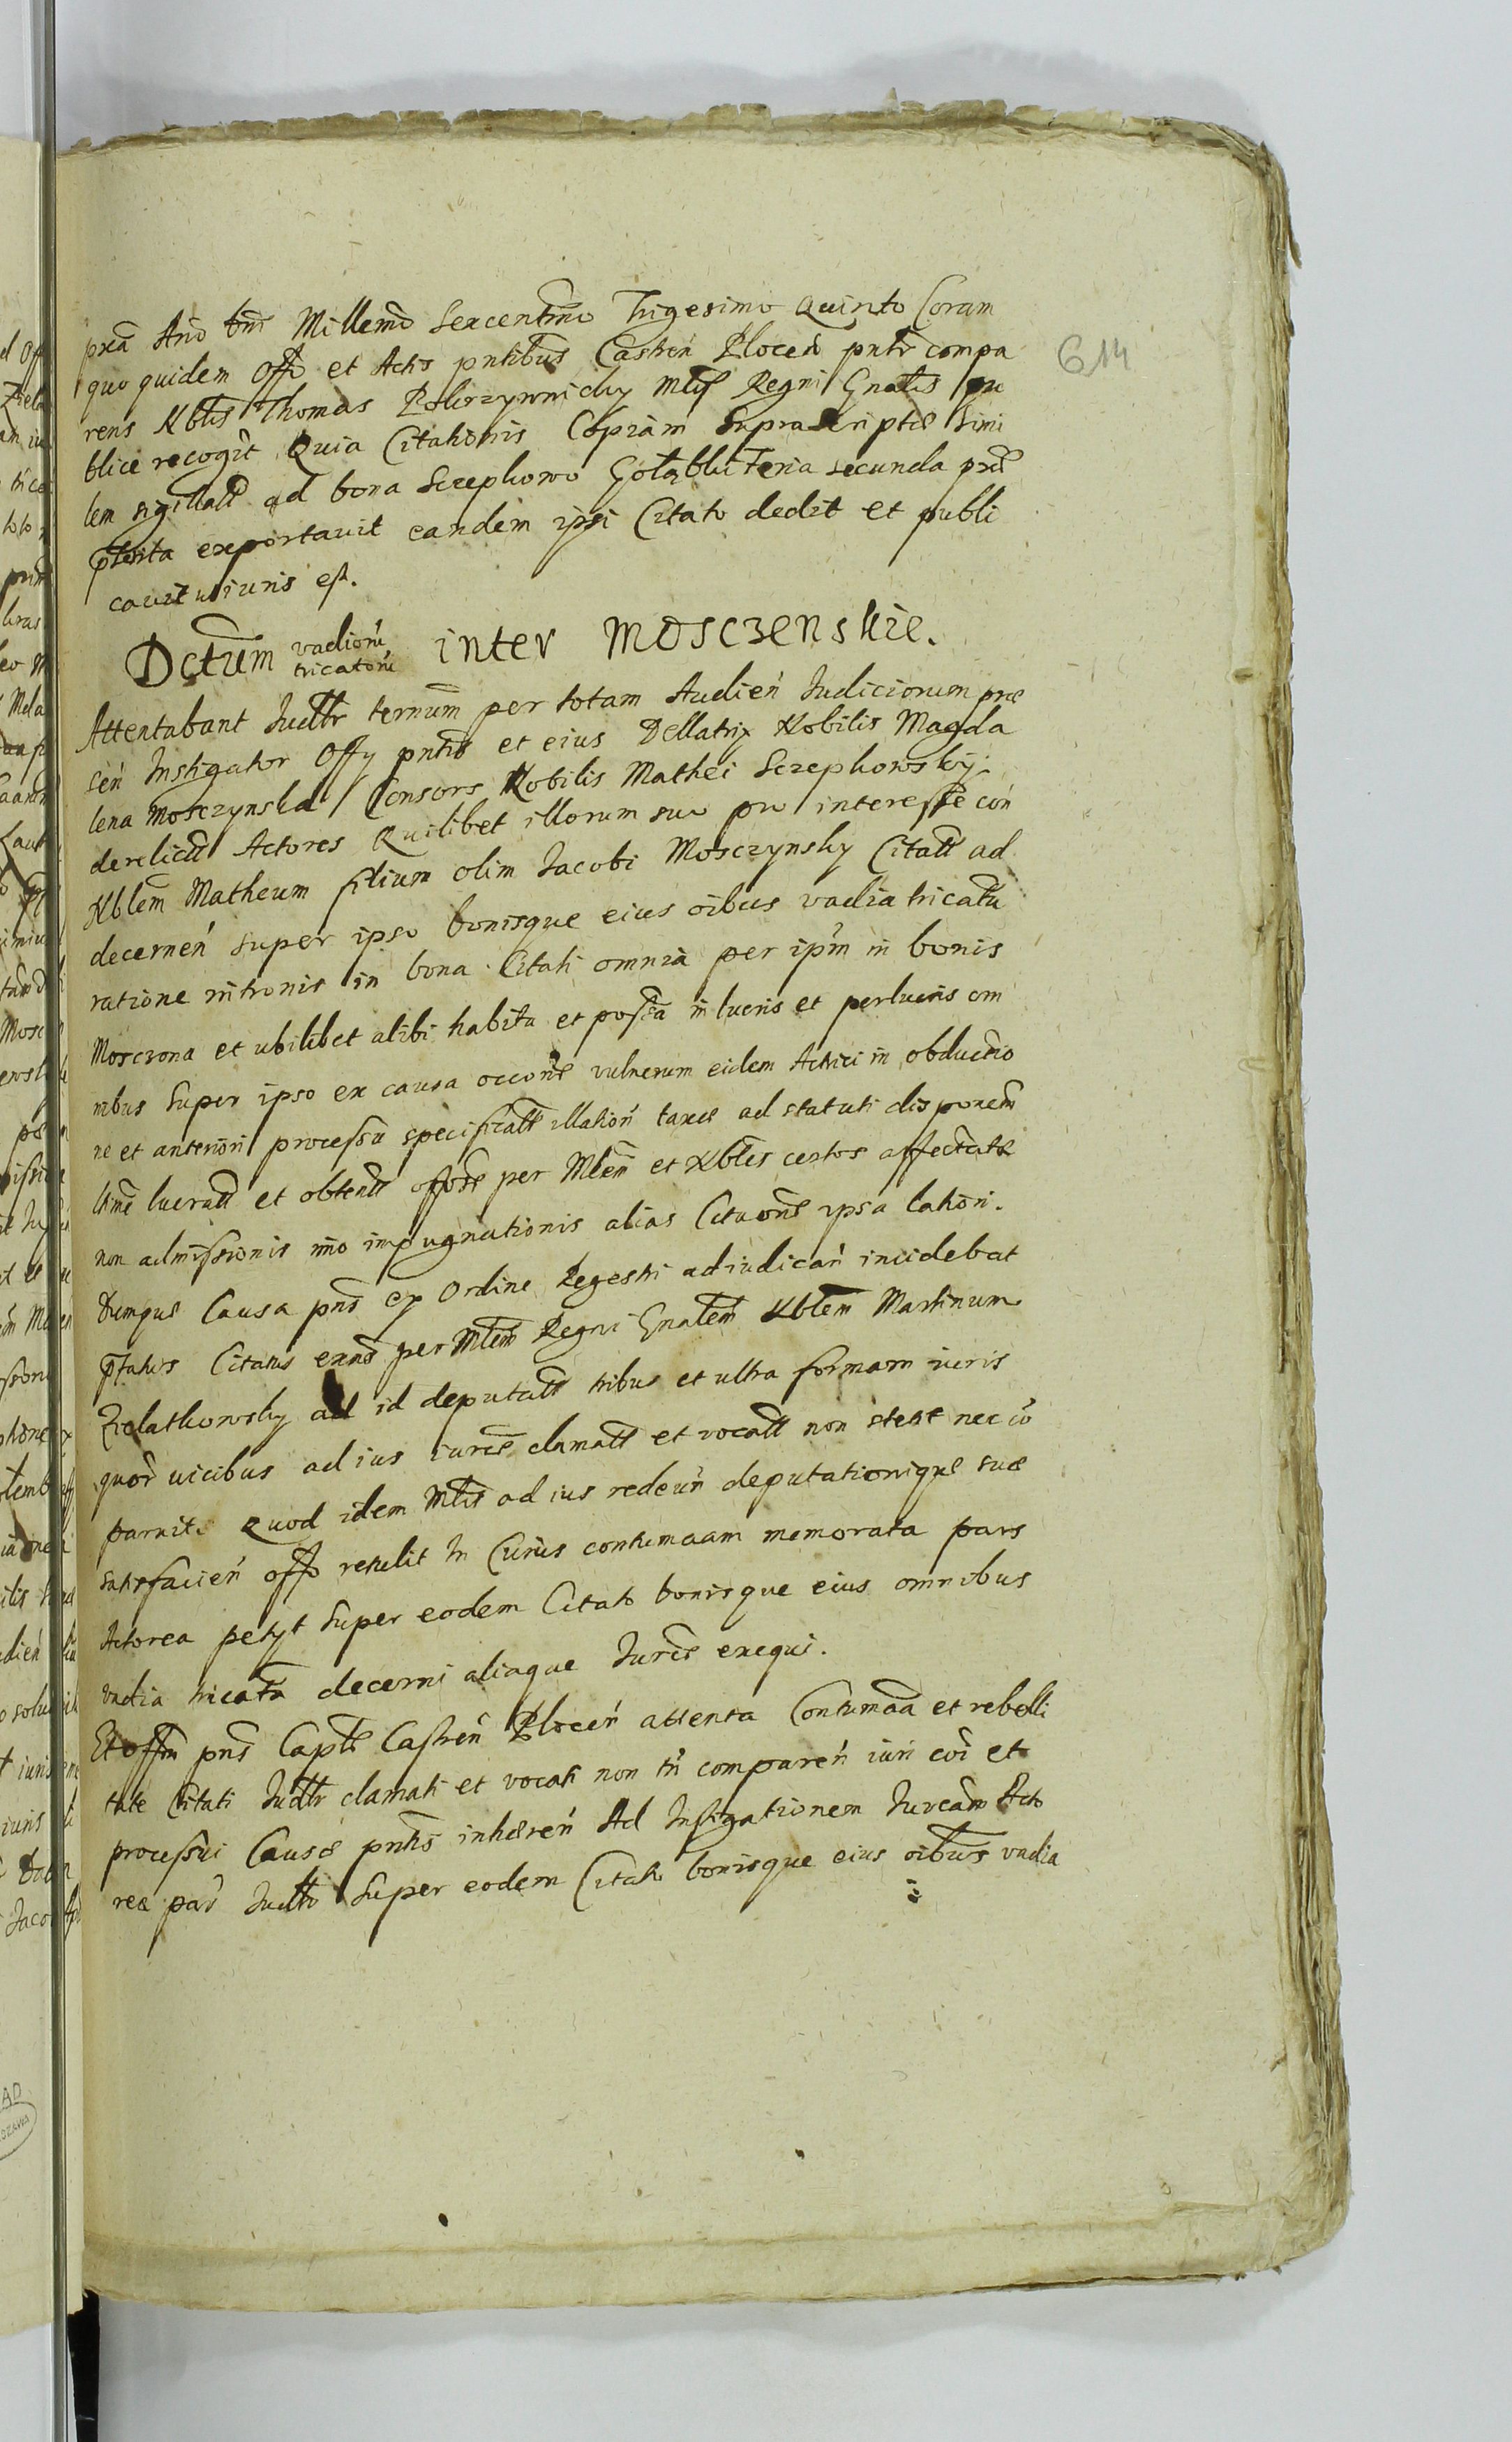 614
pxa Ano Dni Millemo Sexcentmo Trigesimo Quinto Coram
quo quidem Offo et Actis pntibus Castren Plocen pntr compa
rens Nblis Thomas Pokrzywnicky Mlis Regni Gnalis pu
blice recogt Quia Citationis Copiam Suprascriptæ Simi
lem sigillatt ad bona Szephowo Gołąbki Feria secunda pxe
pterita exportauit eandem ipsi Citato dedit et publi
cauit ut iuris est.
Dctum vadioru tricatoru inter Mosczenskie.
Attentabant Judltr ternum per totam Audien Judiciorum præ
sen Instigator Offy pntis et eius Dellatrix Nobilis Magda
lena Mosczynska Consors Nobilis Mathei Szephowsky
derelictt Actores Quilibet illorum suo pro interesse con
Nblem Matheum filium olim Jacobi Mosczynsky Citatt ad
decernen super ipso bonisque eius oibus vadia tricata
ratione intronis in bona Citati omnia per ipm in bonis
Mosczona et ubilibet alibi habita et possa in lucris et perlucris om
nibus super ipso ex causa occone vulnerum eidem Actrici in obductio
ne et anteriori processu specificatt illation taxæ ad statuti disponem
lucratt et obtentt offose per Mlem et Nbles certos affectatæ
non admissionis imo impugnationis alias Citaone ipsa lation.
Dumque Causa pns ex Ordine Regestri adiudican incidebat
ptatus Citatus exns per Mlem Regni Gnalem Nblem Martinum
Zielatkowsky ad id deputatt tribus et ultra formam iuris
quor vicibus ad ius iurce clamatt et vocatt non stetit nec co
paruit. Quod idem Mlis ad ius redeun deputationique suæ
satisfacien offo retulit In Cuius contumaam memorata pars
Actorea petyt super eodem Citato bonisque eius omnibus
vadia tricata decerni aliaque Jurce exequi.
Et offm pns Caple Castren Plocen attenta Contumaa et rebelli
tate Citati Judltr clamati et vocati non tn comparen iuri coi et
processui Causæ pntis inhæren Ad Instigationem Jurcam Acto
reæ par Judlto Super eodem Citato bonisque eius oibus vadia